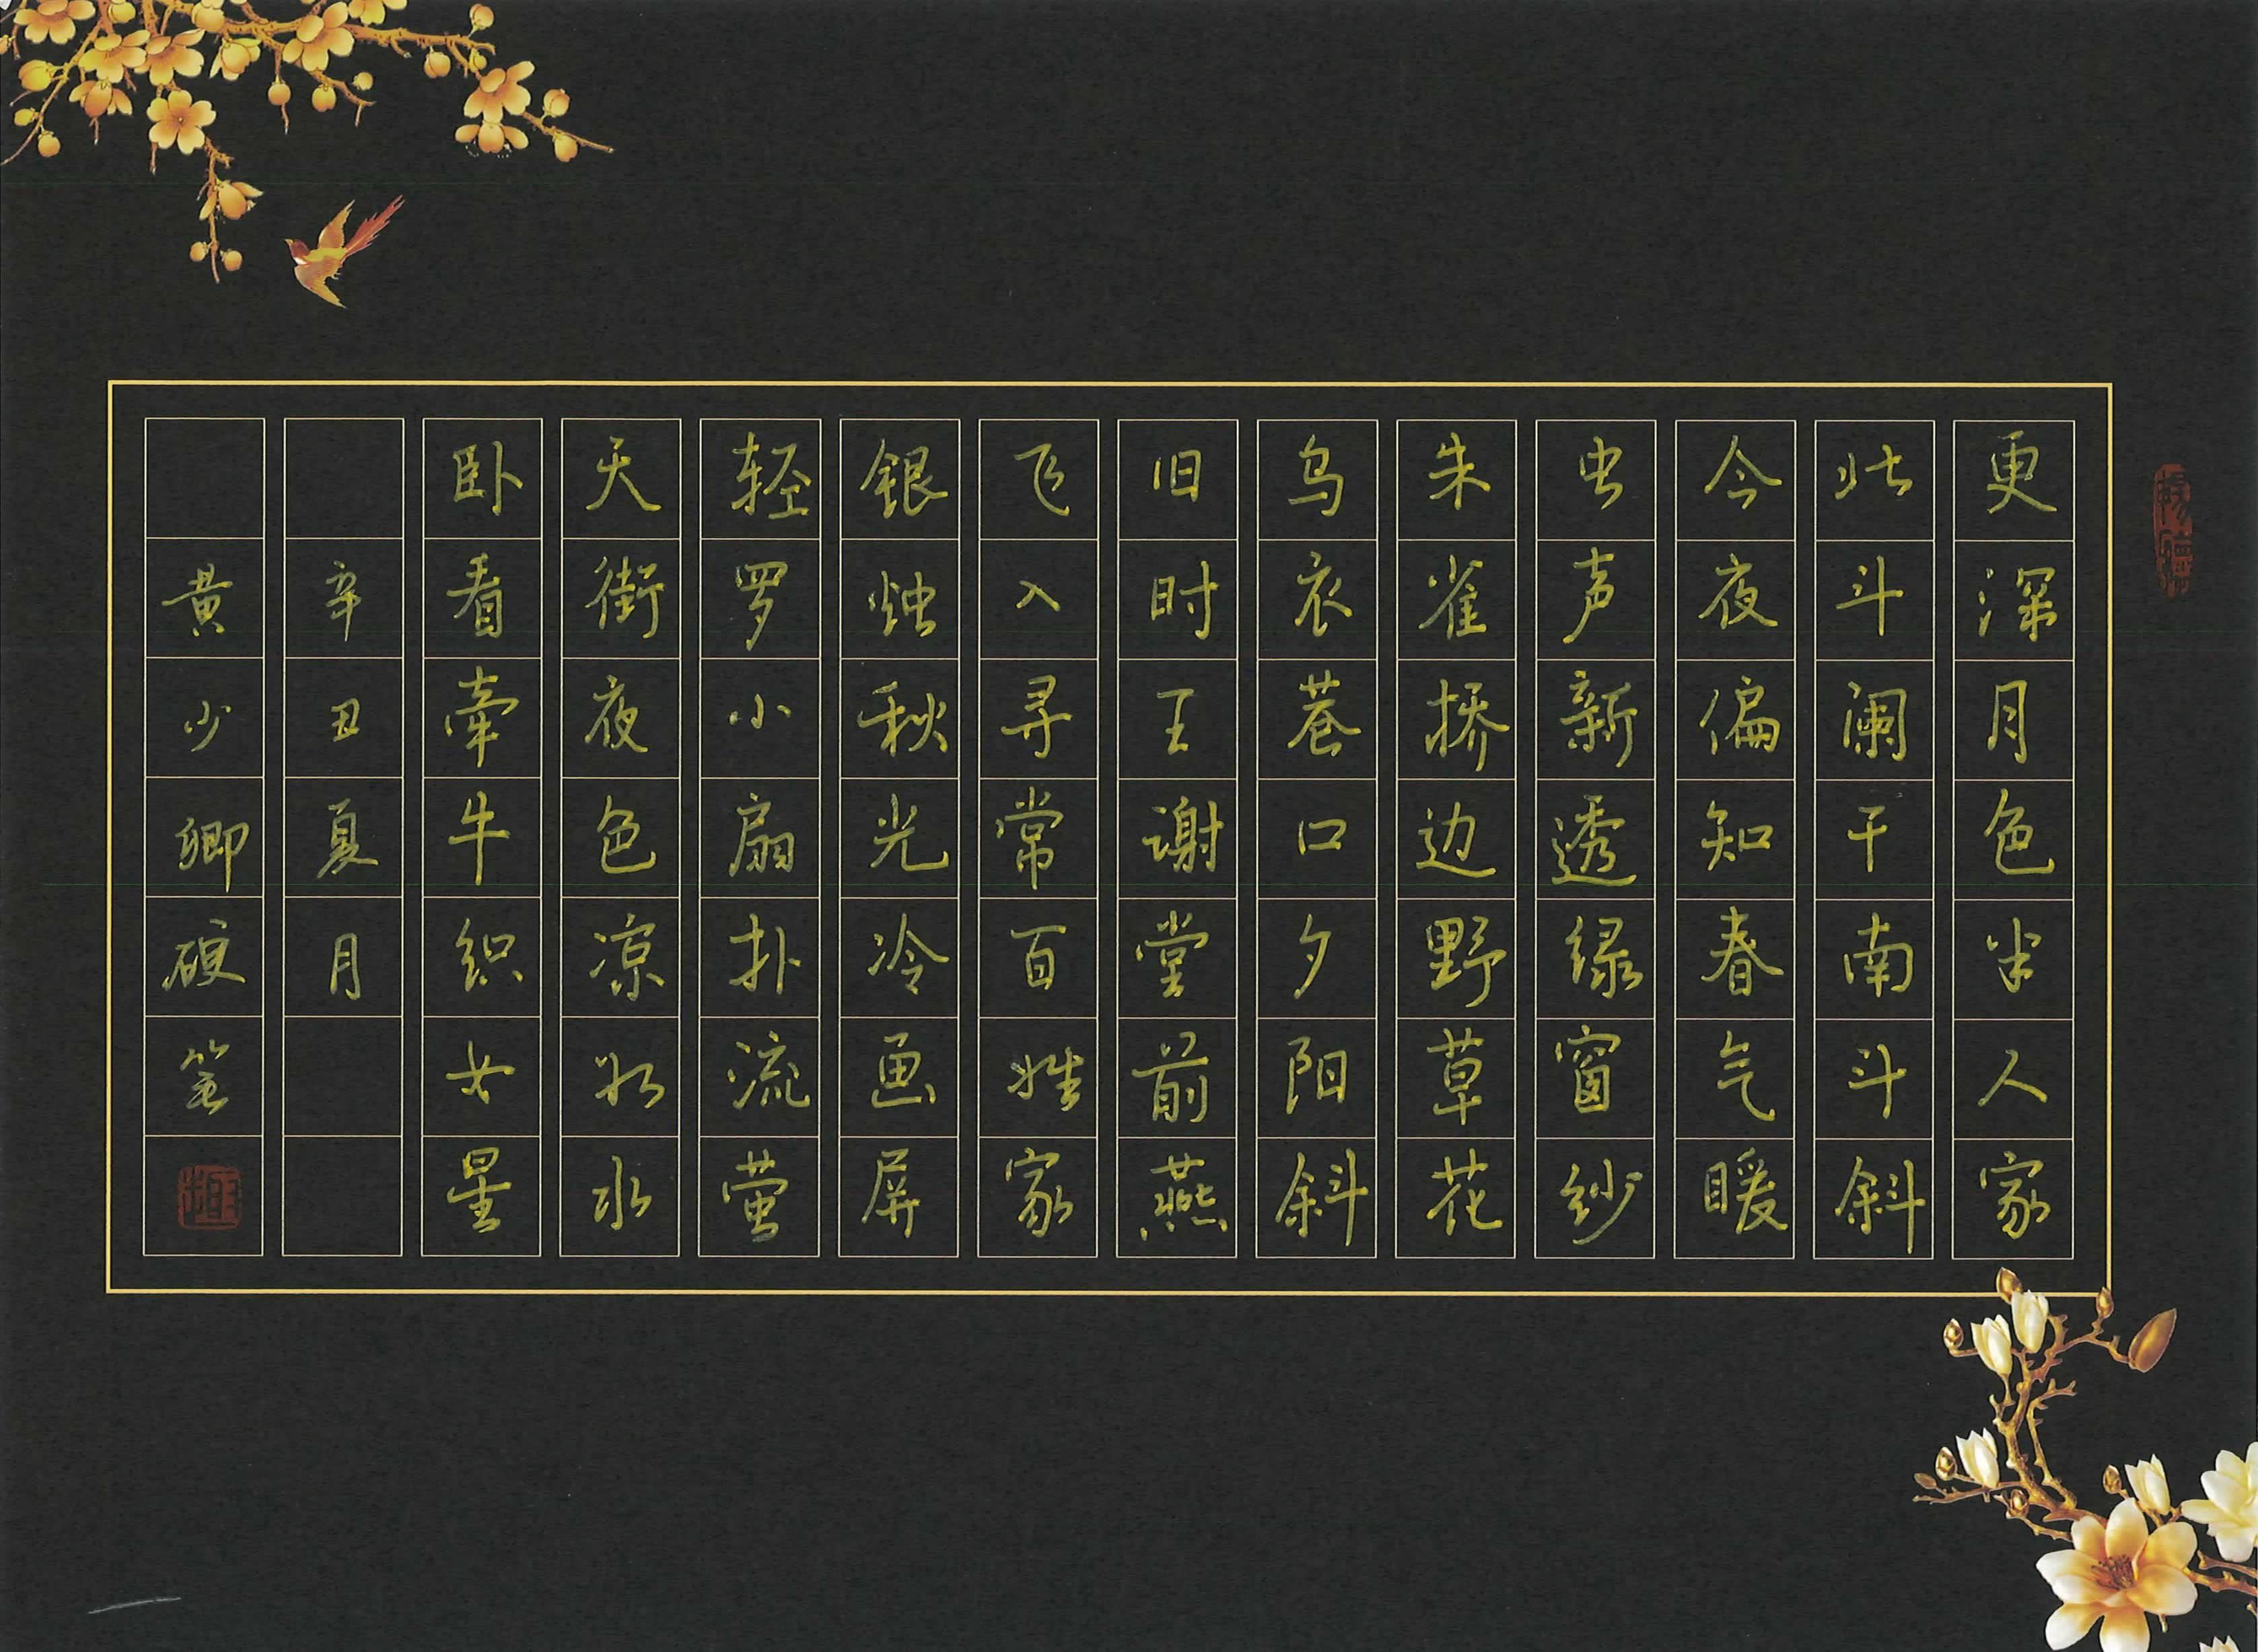 更深月色半人家
北斗阑干南斗斜
今夜偏知春气暖
虫声新透绿窗纱
朱雀桥边野草花
乌衣巷口夕阳斜
旧时王谢堂前燕
飞入寻常百姓家
银烛秋光冷画屏
轻罗小扇扑流萤
天街夜色凉如水
卧看牵牛织女星
辛丑夏月
黄少卿硬笔